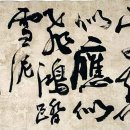 似應似
飛鴻踏
雪泥